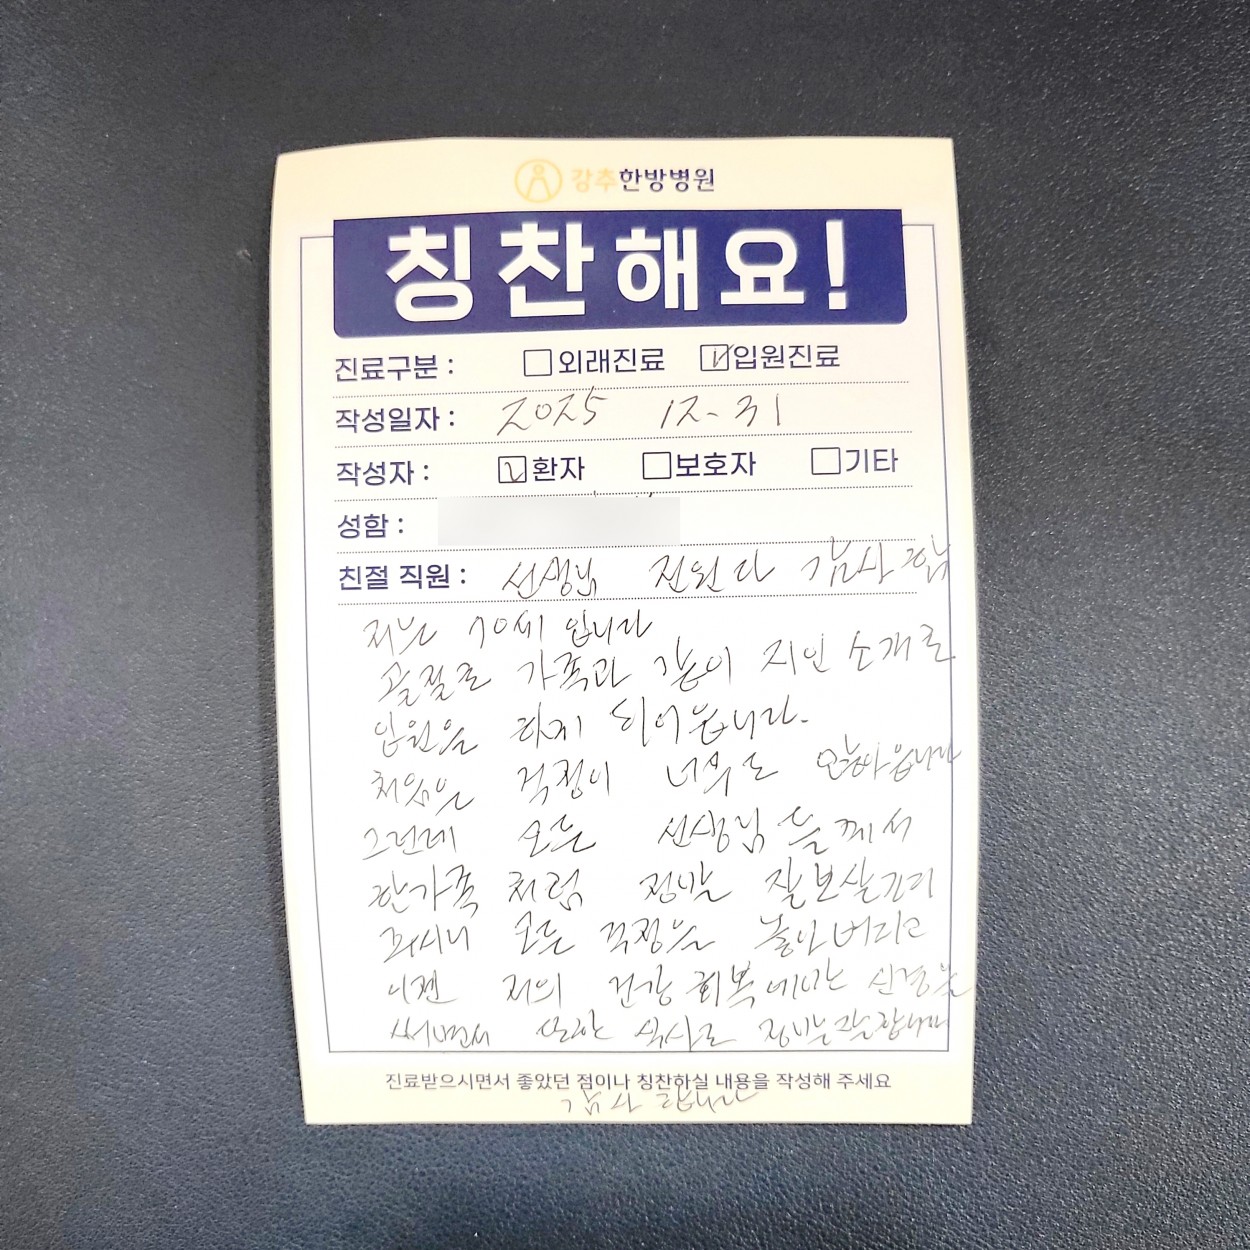 강추한방병원
칭찬해요!
진료구분 : 외래진료 입원진료
작성일자 : 2025 12-31
작성자 : 환자 보호자 기타
성함 :
친절 직원 : 선생님 전원 다 감사
저는 70세 입니다
골절로 가족과 같이 지인 소개로
입원을 하게 되어습니다.
처음은 걱정이 너무도 많아습니다
그런데 모든 선생님들께서
한가족 처럼 정말 잘 보살펴
주시니 모든 걱정을 놓아버리고
이젠 저의 건강 회복에만 신경을
쓰면서 식사도 정말
진료받으시면서 좋았던 점이나 칭찬하실 내용을 작성해 주세요
감사